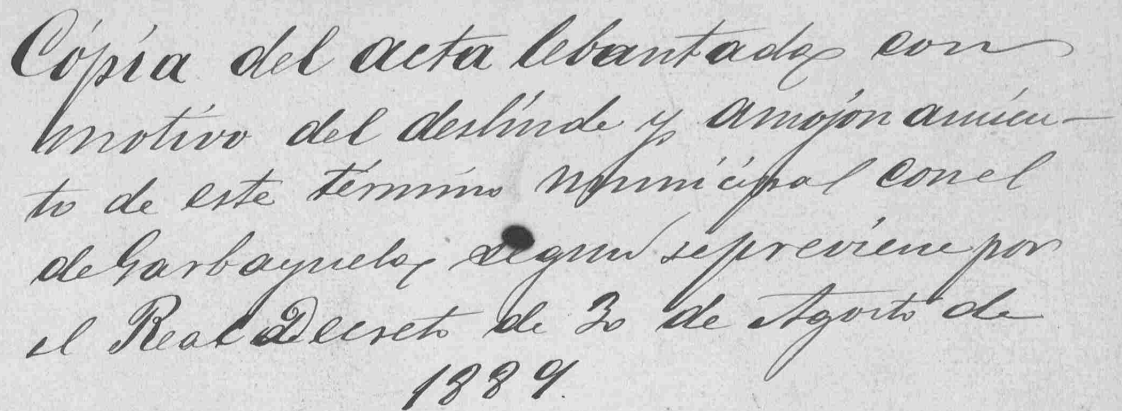 Cópia del acta lebantada con
motivo del deslinde y amojonamien-
to de este término municipal con el
de Garbayuela, segun se previene por
el Real Decreto de 30 de Agosto de
1889.